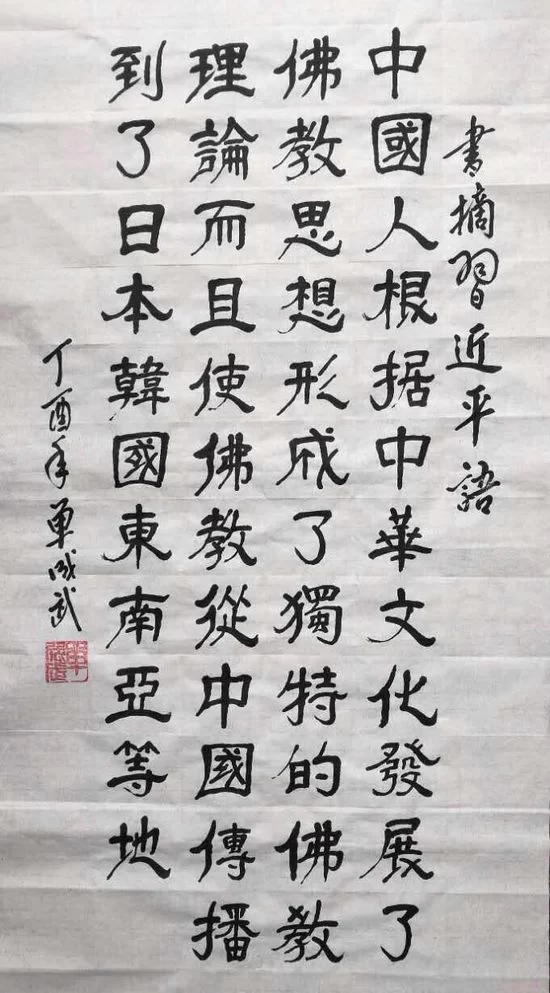 書摘習近平語
中國人根据中華文化發展了
佛教思想形成了獨特的佛教
理論而且使佛教從中國傳播
到了日本韓國東南亞等地
丁酉年單成武